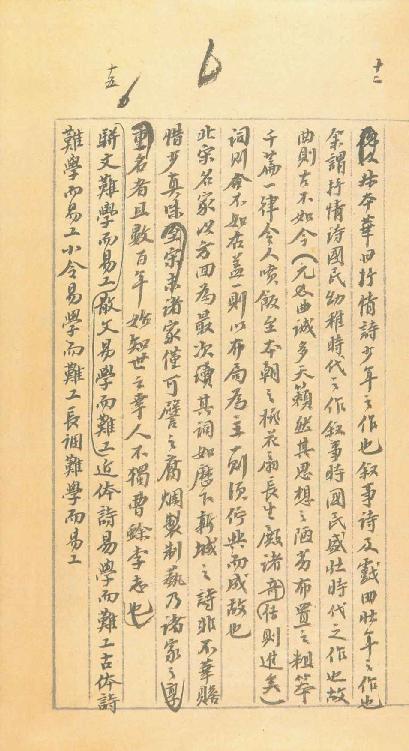 十二
十五
叔本華曰抒情詩少年之作也叙事詩及戲曲壯年之作也
余謂抒情詩國民幼稚時代之作叙事詩國民盛壯時代之作也故
曲則古不如今（元曲誠多天籟然其思想之陋劣布置之粗笨
千篇一律令人噴飯至本朝之桃花扇長生殿諸奇傳則進矣
詞則今不如古蓋一則以布局為主一則須佇興而成故也
北宋名家以方回為最次續其詞如歷下新城之詩非不華贍
惜少真味至宋末諸家僅可譬之腐爛製藝乃諸家之享
重名者且數百年始知世之幸人不獨曹蜍李志也
駢文難學而易工散文易學而難工近体詩易學而難工古体詩
難學而易工小令易學而難工長調難學而易工